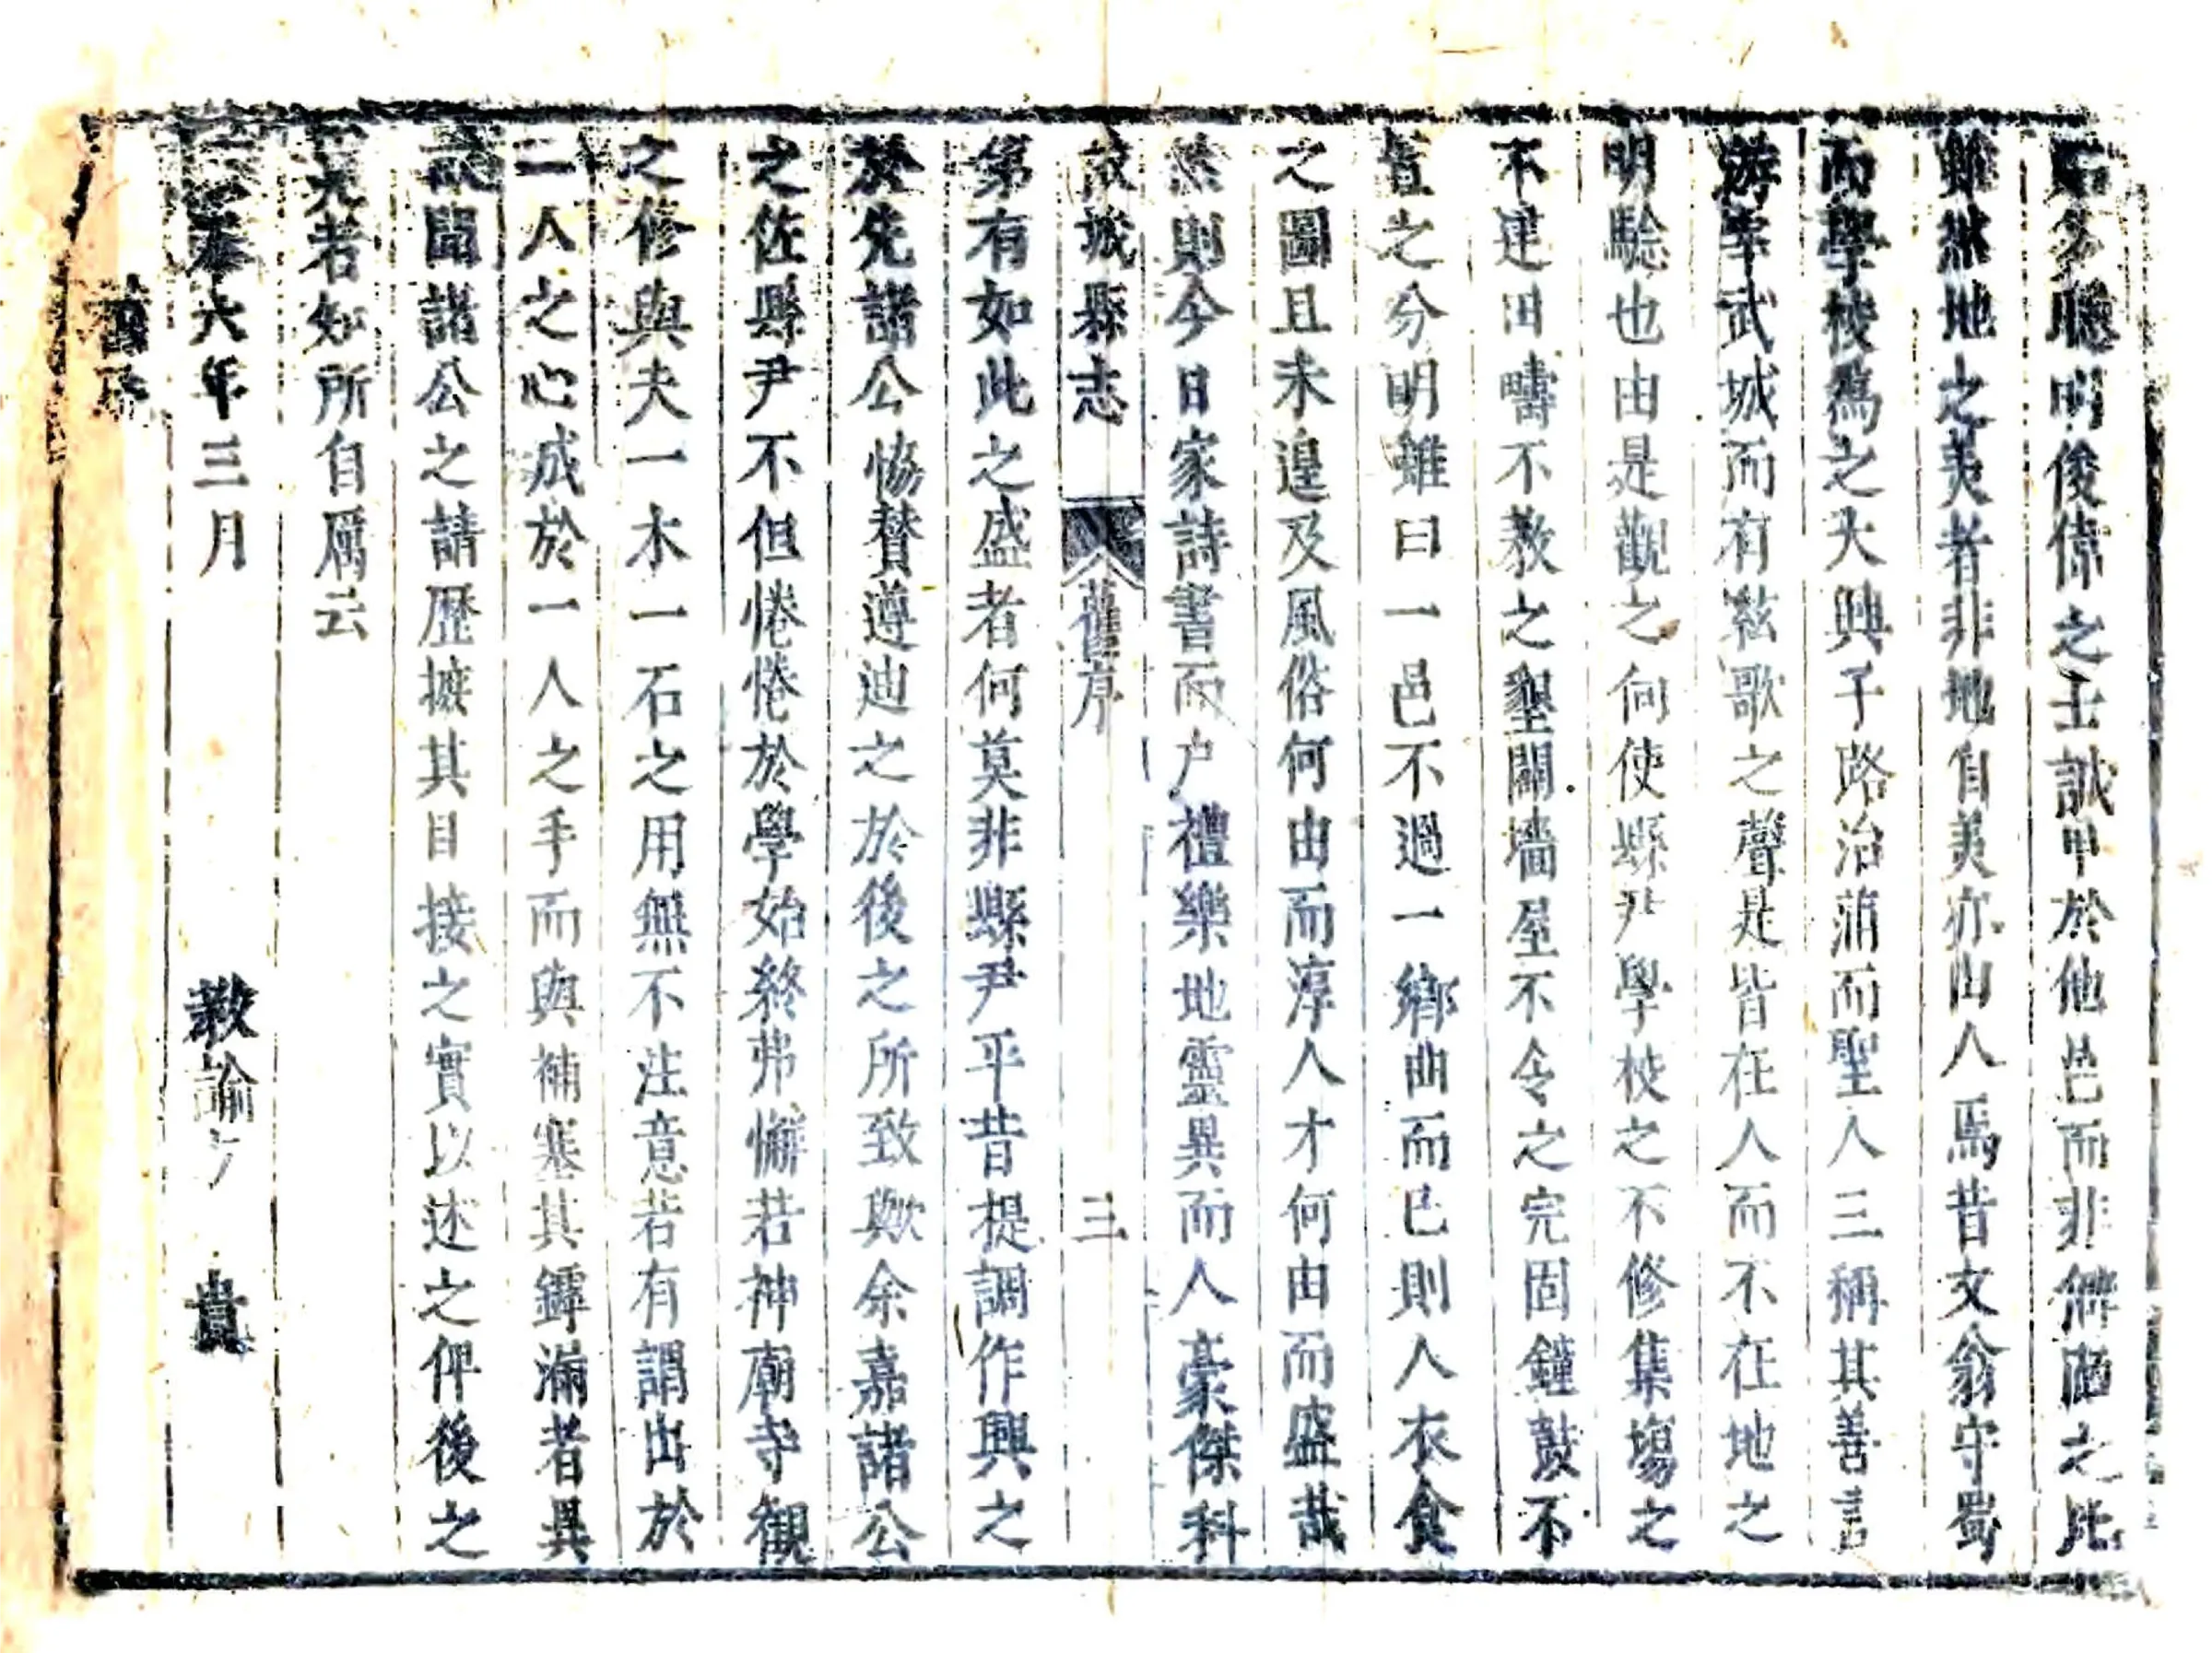 多聰明俊偉之士誠甲於他邑而非僻陋之比
雖然地之美者非地自美亦由人焉昔文翁守蜀
而學校為之大興子路治蒲而聖人三稱其善言
游宰武城而有絃歌之聲是皆在人而不在地之
明驗也由是觀之向使縣尹學校之不修集場之
不建田疇不教之墾闢墻屋不令之完固鐘鼓不
置之分明雖曰一邑不過一鄉曲而已則人衣食
之圖且未遑及風俗何由而淳人才何由而盛哉
然則今日家詩書而户禮樂地靈異而人豪傑科
城縣志 舊序 三
第有如此之盛者何莫非縣尹平昔提調作興之
於先諸公恊賛遵迪之於後之所致歟余嘉諸公
之佐縣尹不但惓惓於學始終弗懈若神廟寺觀
之修與夫一木一石之用無不注意若有謂出於
二人之心成於一人之手而與補塞其罅漏者具
聞諸公之請歷摭其目接之實以述之俾後之
者知所自厲云
六年三月 教諭 貴
舊序